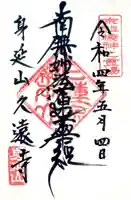 令和四年五月四日
南無妙法蓮華経
身延山久遠寺